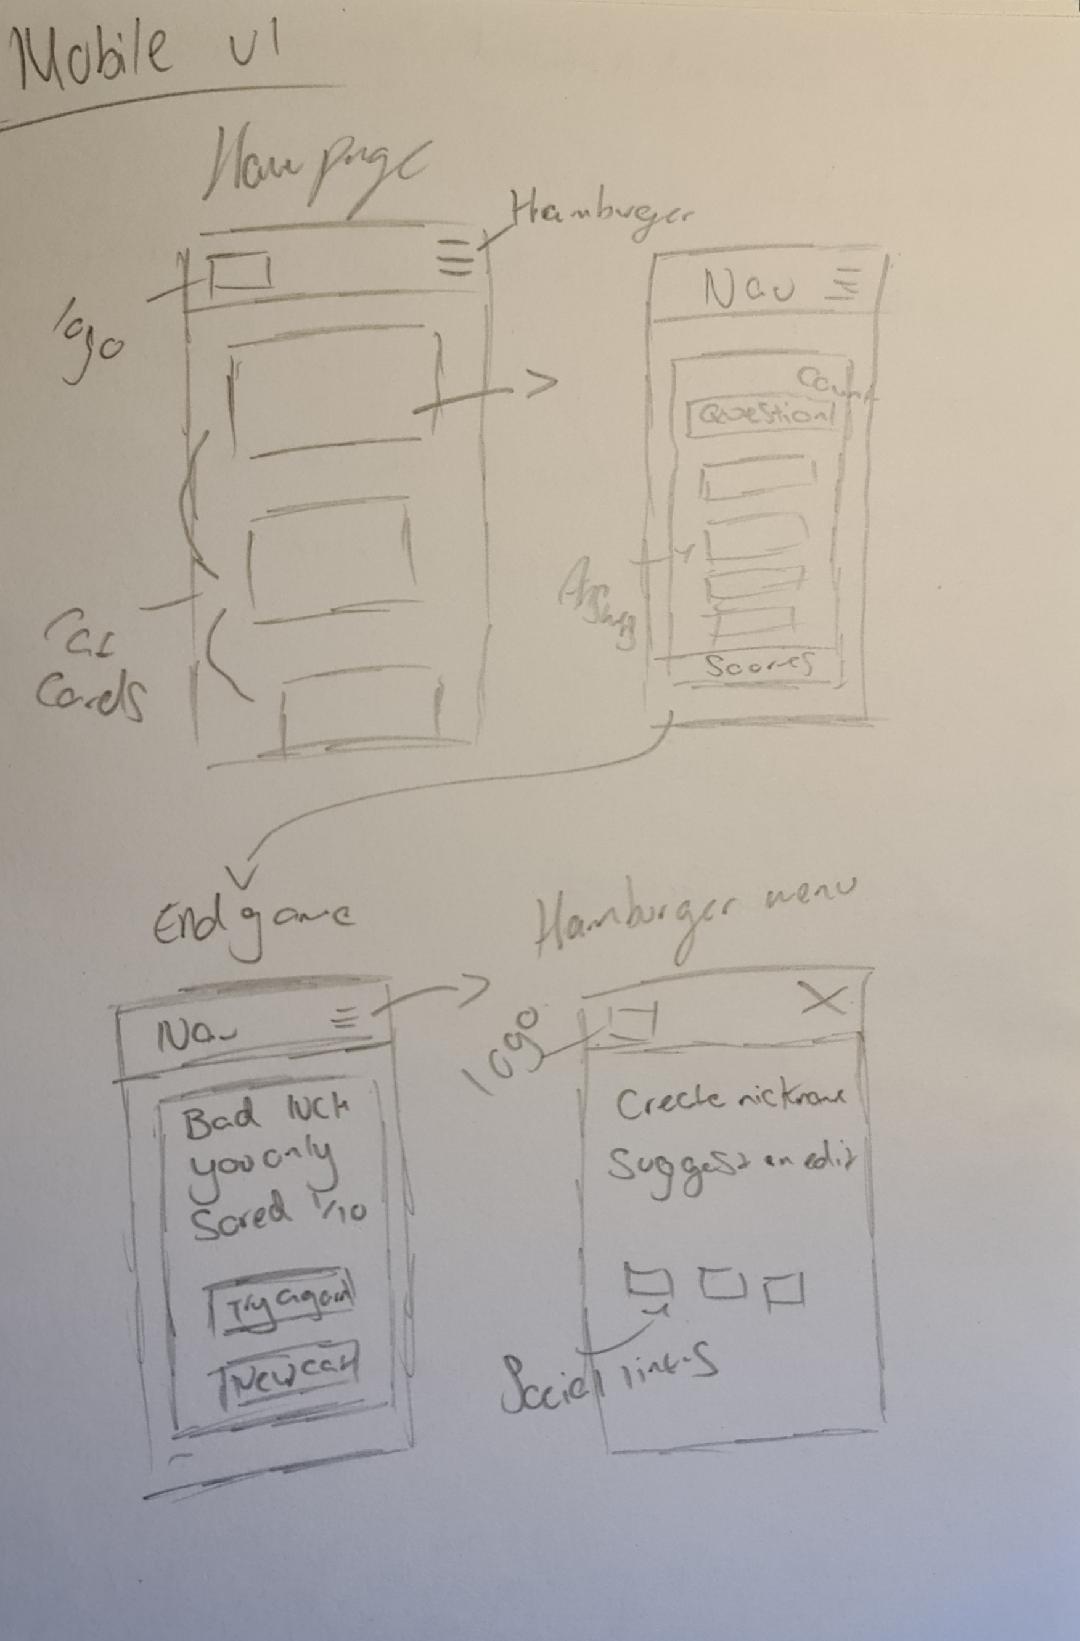 Mobile v1
Home page
Hamburger
logo
Cat
Cards
Nav
Count
Question
Answers
Scores
End game
Nav
Bad luck
you only
Scored 1/10
Try again
New cat
Hamburger menu
logo
Create nickname
Suggest an edit
Social links